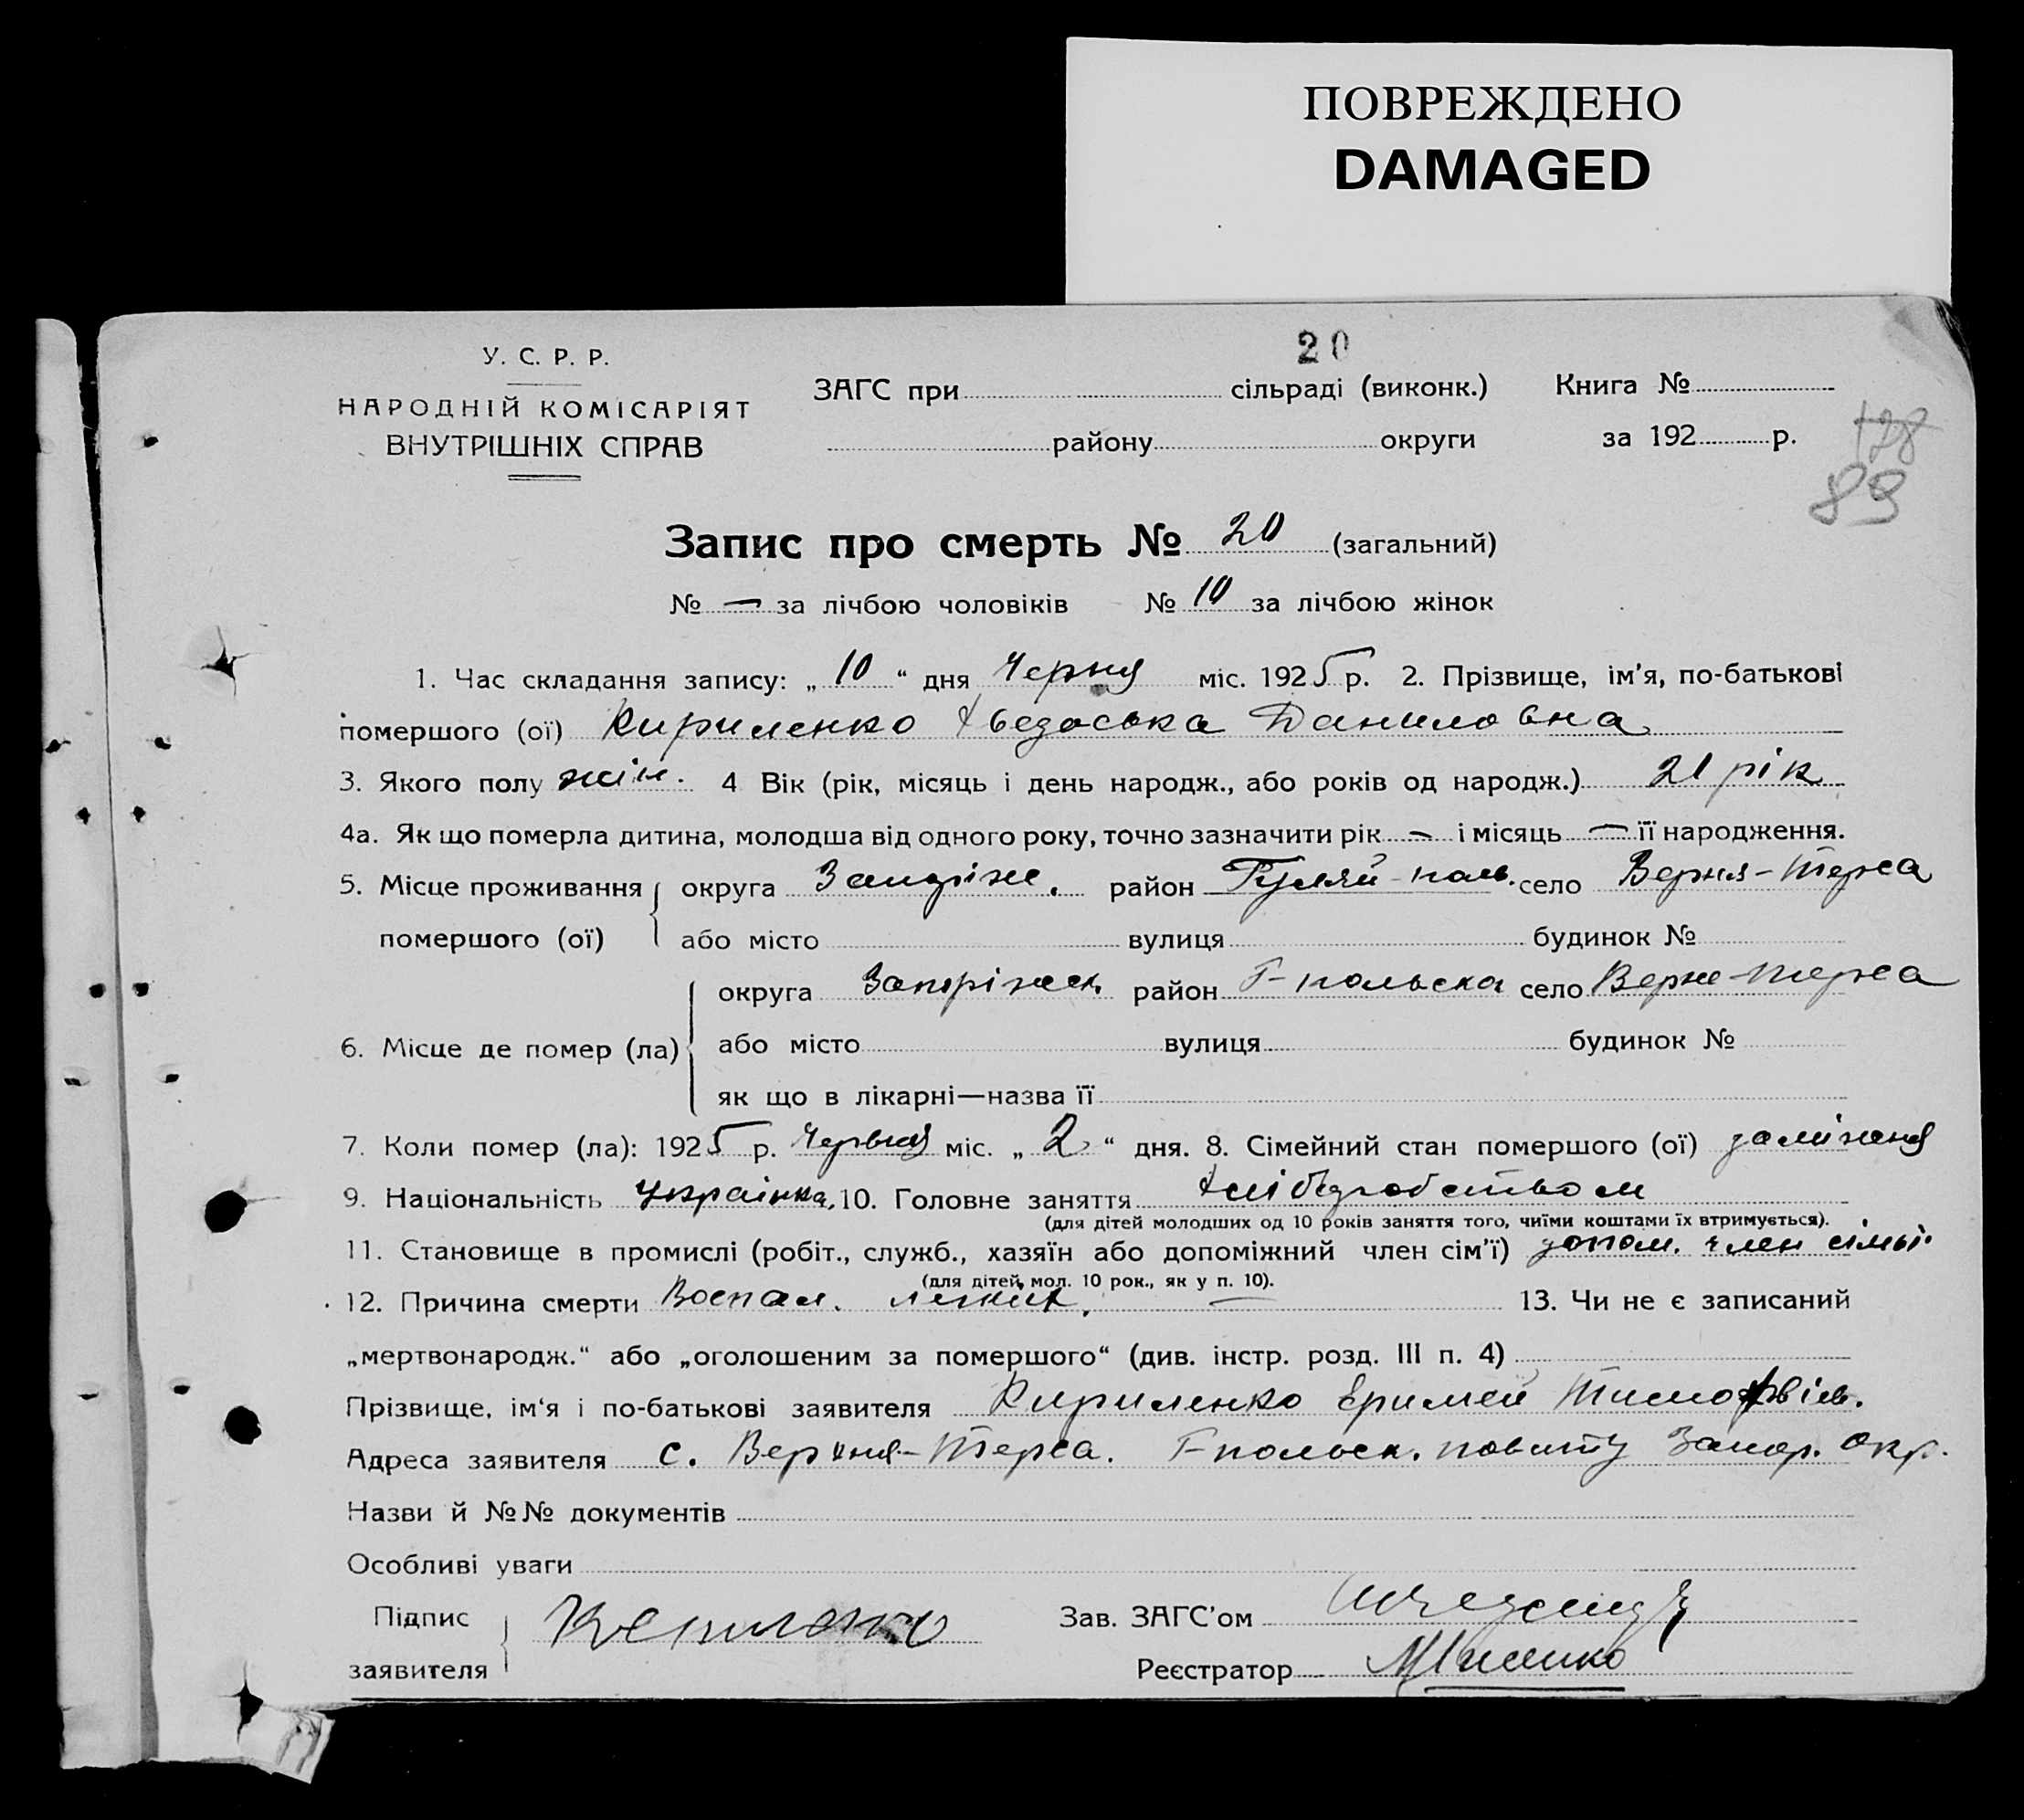 ПОВРЕЖДЕНО
DAMAGED
20
У. С. Р. Р.
НАРОДНІЙ КОМІСАРІЯТ
ВНУТРІШНІХ СПРАВ
ЗАГС при сільраді (виконк.) Книга №
району округи за 192 р.
178
89
Запис про смерть № 20 (загальний)
№ — за лічбою чоловіків № 10 за лічбою жінок
1. Час складання запису: „ 10 “ дня Черня міс. 1925 р. 2. Прізвище, ім'я, по-батькові
помершого (ої) Кириленко Хведоська Даниловна
3. Якого полу жін. 4 Вік (рік, місяць і день народж., або років од народж.) 21 рік
4а. Як що померла дитина, молодша від одного року, точно зазначити рік — і місяць — її народження.
5. Місце проживання помершого (ої) округа Запоріж. район Гуляй-поль. село Верня-Терса
або місто вулиця будинок №
6. Місце де помер (ла) округа Запоріжск. район Г-польска село Верне-Терса
або місто вулиця будинок №
як що в лікарні—назва її
7. Коли помер (ла): 1925 р. Червня міс. „ 2 “ дня. 8. Сімейний стан помершого (ої) заміжня
9. Національність Украінка, 10. Головне заняття Хлібодробством
(для дітей молодших од 10 років заняття того, чиїми коштами їх втримується).
11. Становище в промислі (робіт., служб., хазяїн або допоміжний член сім'ї) допом. член сімьі
(для дітей мол. 10 рок., як у п. 10).
12. Причина смерти Воспал. легких. 13. Чи не є записаний
„мертвонародж.“ або „оголошеним за помершого“ (див. інстр. розд. III п. 4)
Прізвище, ім‘я і по-батькові заявителя Кириленко Еримей Тимофвів.
Адреса заявителя с. Верхня-Терса. Г-польск. повиту Запор. Окр.
Назви й №№ документів
Особливі уваги
Підпис заявителя Зав. ЗАГС'ом
Реєстратор